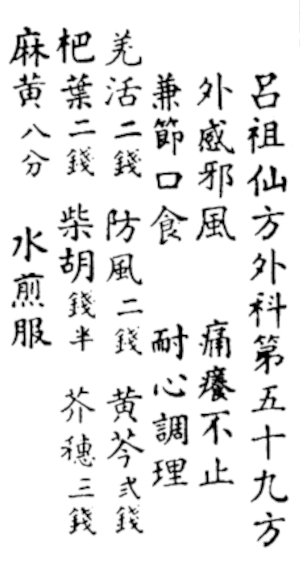 呂祖仙方外科第五十九方
外感邪風 痛癢不止
兼節口食 耐心調理
羌活二錢 防風二錢 黃芩弍錢
杷葉二錢 柴胡錢半 芥穗三錢
麻黃八分 水煎服